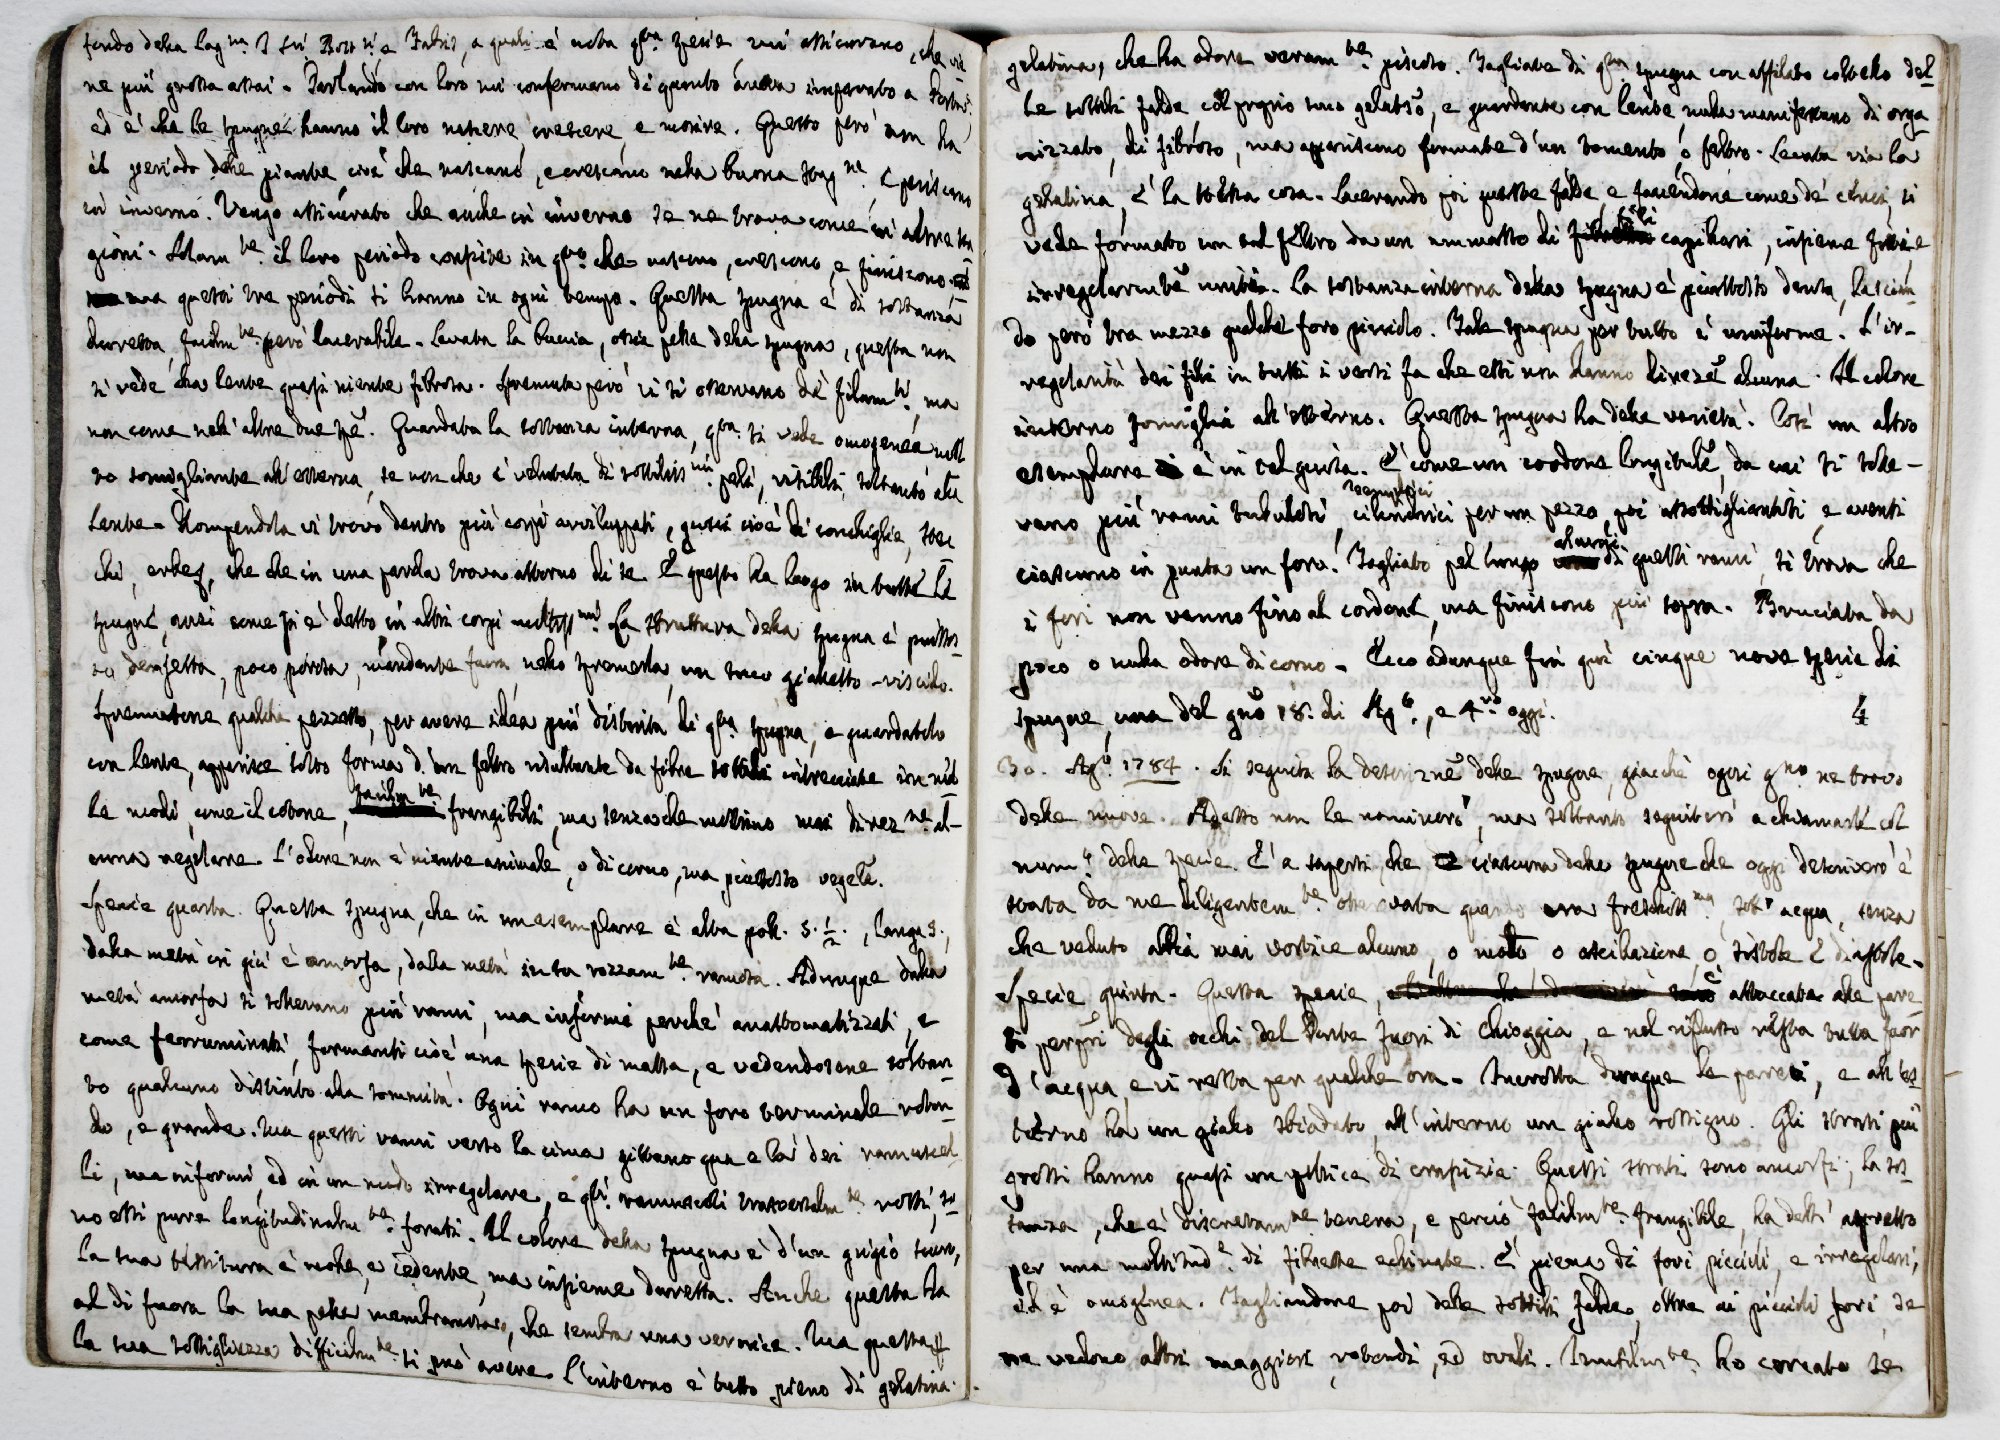 fondo della lag.na I Sri Bott.ri e Fabris, a quali è nota q.ta spezie mi assicurano, che vie
ne più grossa assai. Parlando con loro mi confermano di quanto aveva imparato a
ed è che le spugne hanno il loro nascere, crescere, e morire. Questo però non ha
il periodo delle piante, cioè che nascano, e crescano nella buona stag.ne, e periscano
in inverno. Vengo assicurato che anche in inverno se ne trova come in altre sta
gioni. Solam.te il loro periodo consiste in q.to che nascono, crescono, e finiscono
ma questi tre periodi si hanno in ogni tempo. Questa spugna è di sostanza
duretta, facilm.te però lacerabile. Levata la buccia, ossia pelle della spugna, questa non
si vede colla lente quasi niente fibrosa. Spremuta però vi si osservano de' filam.ti, ma
non come nell'altre due spē. Guardata la sostanza interna, q.ta si vede omogenea molt
to somigliante all'esterna, se non che è vellutata di sottiliss.mi peli, visibili soltanto alla
lente. Rompendola vi trovo dentro più corpi avviluppati, gusci cioè di conchiglie, stec
chi, erbe, che che in una parola trova attorno di se. E questo ha luogo in tutte le
spugne, anzi come si è detto in altri corpi La struttura della spugna è piuttos
to densetta, poco porosa, mandante fuora nello spremerla un suco gialletto-viscido.
Spremutone qualche pezzetto, per avere idea più distinta di q.ta spugna, e guardatolo
con lente, apparisce sotto forma d'un feltro risultante da fibre sottili intrecciate in mil
le modi, come il cotone, facilm.te frangibili, ma senza che mostrino mai direz.ne al-
cuna regolare. L'odore non è niente animale, o di corno, ma piuttosto vegetē.
Spezie quarta. Questa spugna, che in un esemplare è alta poll. 5. 1/2., larga 3.,
dalla metà in giù è amorfa, dalla metà in su rozzam.te ramosa. Adunque dalla
metà amorfa si sollevano più rami, ma informi perchè anattomatizzati, e
come ferruminati, formanti cioè una spezie di massa, e vedendosene soltan
to qualcuno distinto alla sommità. Ogni ramo ha un foro terminale roton
do, e grande. Ma questi rami verso la cima gittano qua e là dei ramuscel
li, ma informi, ed in un modo irregolare, e q.ti ramuscoli trasversalm.te rotti, so
no essi pure longitudinalm.te forati. Il colore della spugna è d'un grigio scuro,
la sua tessitura è molle, e cedente, ma insieme duretta. Anche questa ha
al di fuora la sua pelle membranosa, che sembra una vernice. Ma questa
la sua sottigliezza difficilm.te si può avere. L'interno è tutto pieno di gelatina.
gelatina, che ha odore veram.te piscoso. Tagliate di q.ta spugna con affilato coltello del
le sottili falde, col proprio suco gelatsō, e guardate con lente nulla manifestano di orga
nizzato, di fibroso, ma appariscono formate d'un tomento, o feltro. Levata via la
gelatina, è la stessa cosa. Lacerando poi queste falde, e facendone come de' cenci, si
vede formato un tal feltro da un ammasso di fili capillari, insieme
irregolarmentē uniti. La sostanza interna della spugna è piuttosto densa, lascian
do però tra mezzo qualche foro picciolo. Tale spugna per tutto è uniforme. L'ir-
regolarità dei fili in tutti i versi fa che essi non hanno direzē alcuna. Il colore
interno somiglia all'esterno. Questa spugna ha delle varietà. Così un altro
esemplare è in tal guisa. E' come un cordone longitudē, da cui si solle-
vano più rami tubulosi, semplici cilindrici per un pezzo, poi assottigliantisi, e aventi
ciascuno in punta un foro. Tagliato pel lungo alcuni di questi rami, si trova che
i fori non vanno fino al cordone, ma finiscono più sopra. Bruciata da
poco o nulla odore di corno. Ecco adunque fin qui cinque nove spezie di
spugne, una del gnō 18. di Ag.to, e 4.tro oggi. 4
30. Ag.to 1784. Si seguita la descriznē delle spugne, giacchè ogni g.no ne trovo
delle nuove. Adesso non le nominerò, ma soltanto seguiterò a chiamarle col
num.o delle spezie. E' a sapersi, che ciascuna delle spugne che oggi descriverò è
stata da me diligentem.te osservata quando era freschiss.ma sott'acqua, senza
che veduto abbia mai vortice alcuno, o moto o oscillazione, o sistole e diastole.
Spezie quinta. Questa spezie, è attaccata alle pare
ti degli occhi del Ponte fuori di Chioggia, e nel riflusso resta tutta fuor
d'acqua, e vi resta per qualche ora. Incrosta dunque le pareti, e all'es
terno ha un giallo sbiadato, all'interno un giallo rossigno. Gli strati più
grossi hanno quasi un pollice di crassizie. Questi strati sono amorfi; la sos
tanza, che è discretam.te tenera, e perciò facilm.te frangibile, ha dell'aspretto
per una moltitud.e di fibrette echinate. E' piena di fori piccioli, e irregolari,
ed è omogenea. Tagliandone poi delle sottili falde, oltre ai piccioli fori, se
ne vedono altri maggiori, rotondi, ed ovali. Inutilm.te ho cercato se